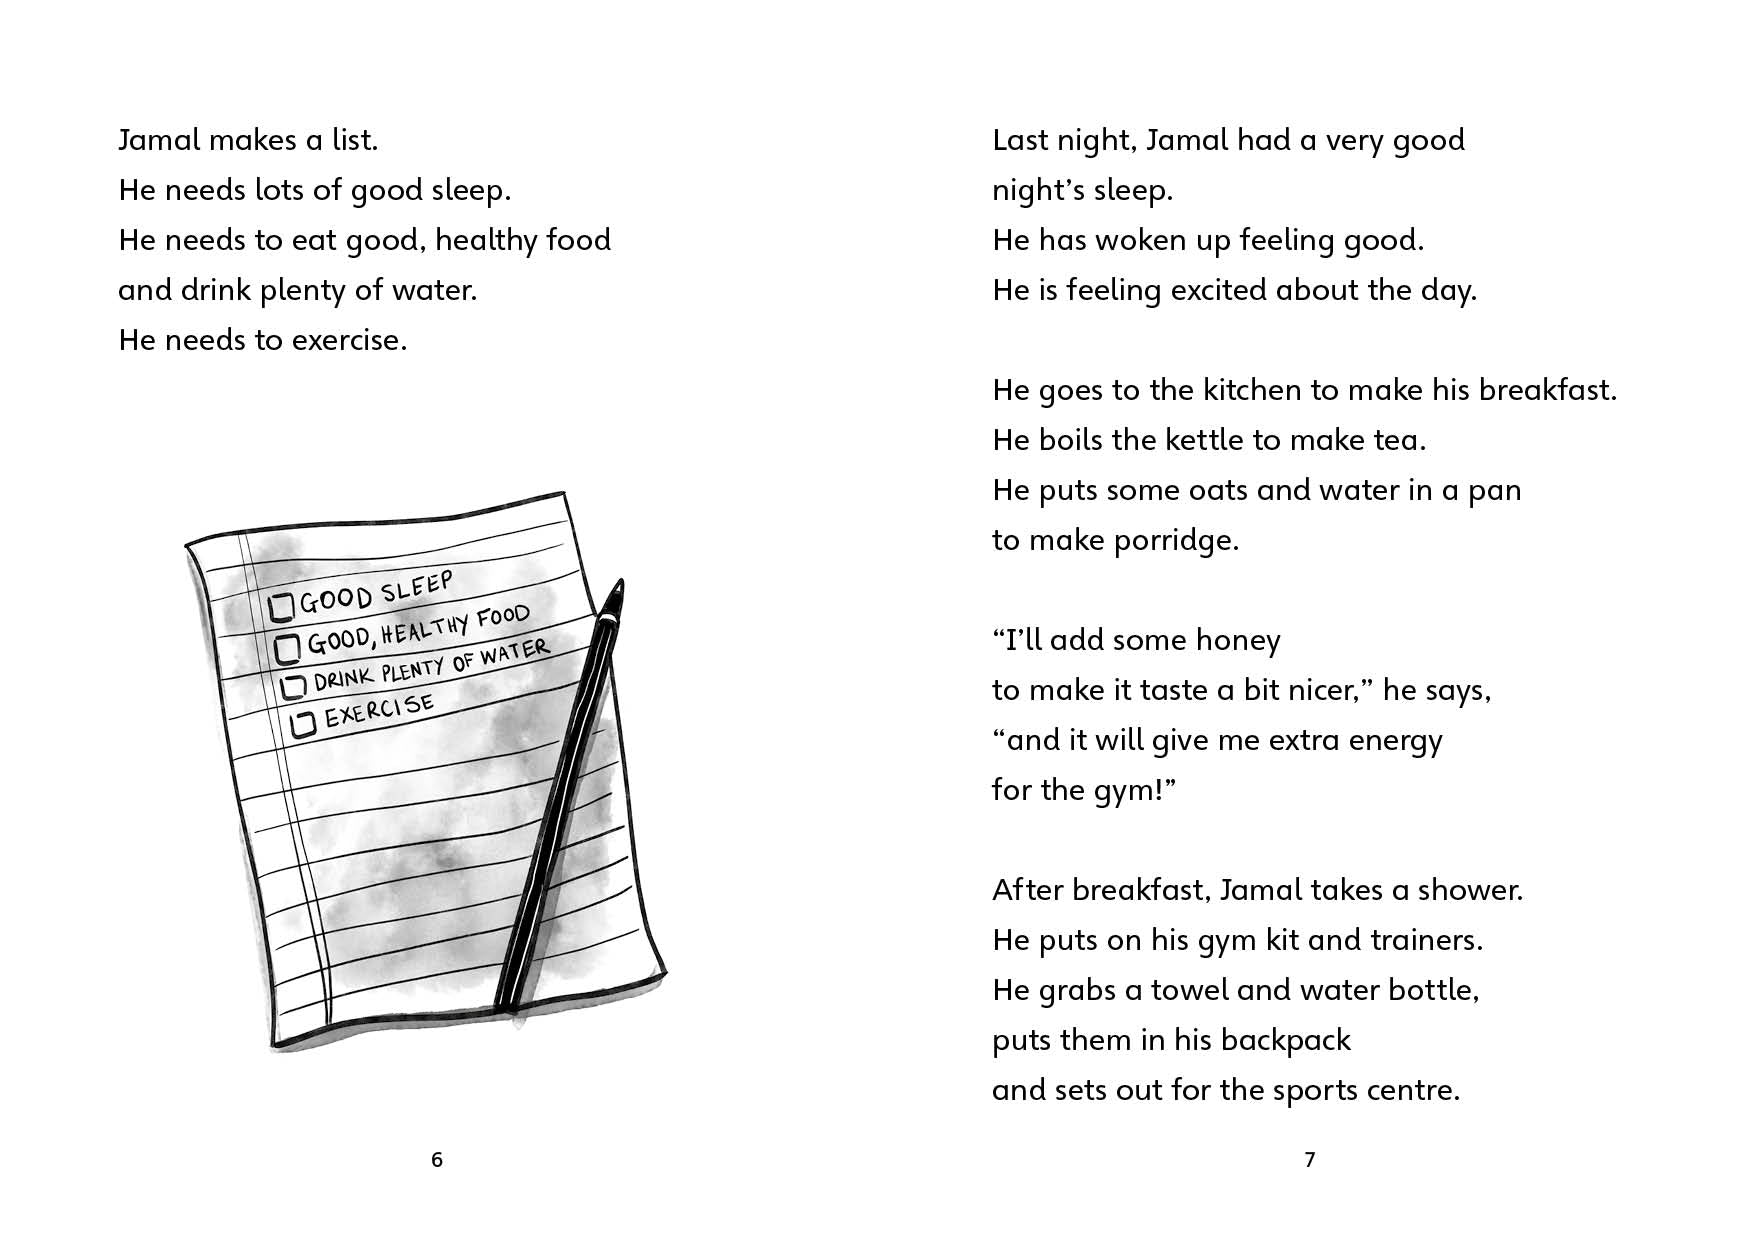 Jamal makes a list.
He needs lots of good sleep.
He needs to eat good, healthy food
and drink plenty of water.
He needs to exercise.
GOOD SLEEP
GOOD, HEALTHY FOOD
DRINK PLENTY OF WATER
EXERCISE
6
Last night, Jamal had a very good
night’s sleep.
He has woken up feeling good.
He is feeling excited about the day.
He goes to the kitchen to make his breakfast.
He boils the kettle to make tea.
He puts some oats and water in a pan
to make porridge.
“I’ll add some honey
to make it taste a bit nicer,” he says,
“and it will give me extra energy
for the gym!”
After breakfast, Jamal takes a shower.
He puts on his gym kit and trainers.
He grabs a towel and water bottle,
puts them in his backpack
and sets out for the sports centre.
7